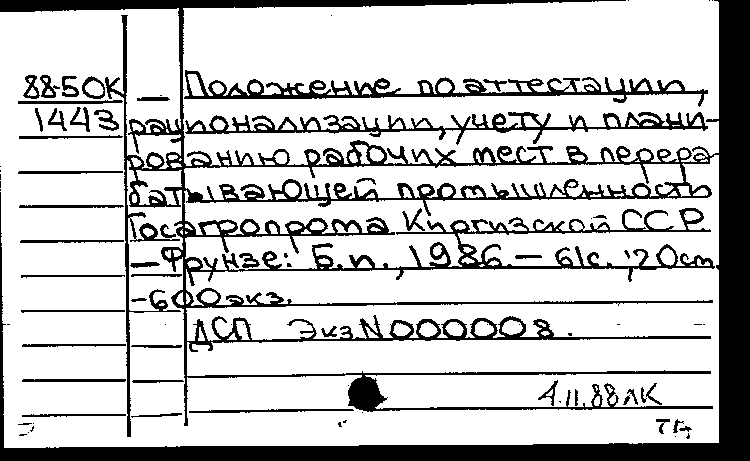 88-5 ОК — Положение по аттестации,
1443 рационализации, учету и плани-
рованию рабочих мест в перера-
батывающей промышленность
Госагропрома Киргизской ССР.
— Фрунзе: Б.п., 1986. — 61с., 20см.
-600экз.
ДСП Экз.N000008.
4.11.88 ЛК